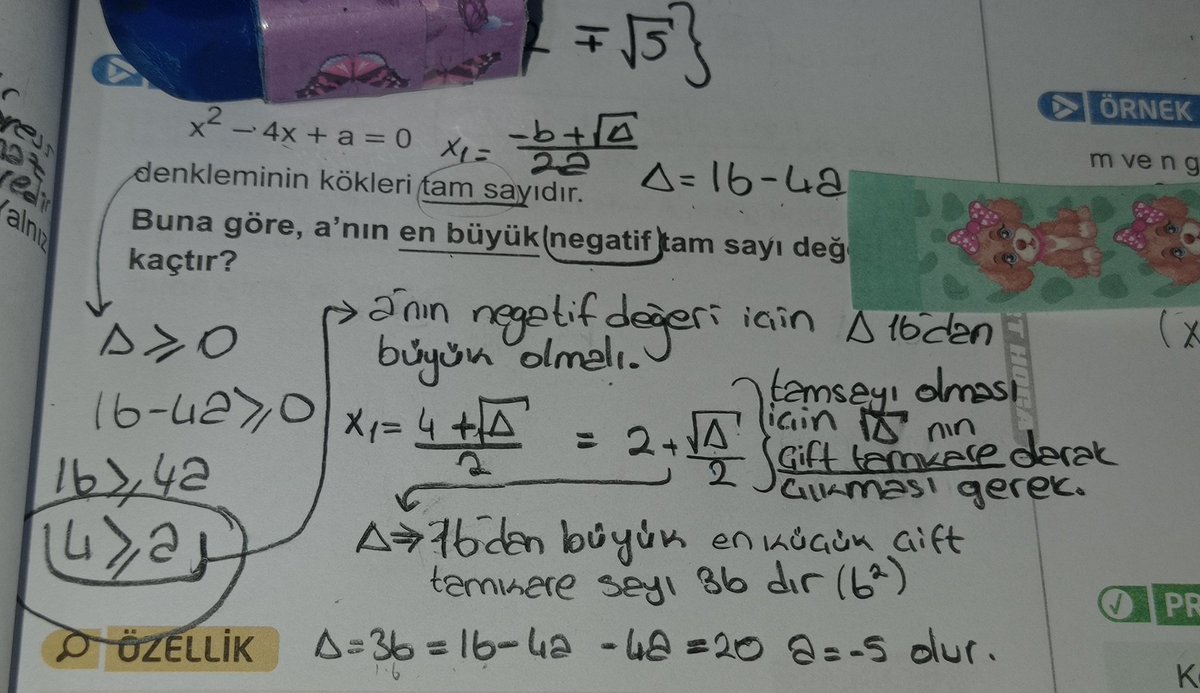 ∓√5}
x² - 4x + a = 0
x₁ = (-b+√Δ)/2a
Δ = 16-4a
denkleminin kökleri tam sayıdır.
Buna göre, a'nın en büyük (negatif) tam sayı değ
kaçtır?
ÖRNEK
m ve n g
alnız
Δ ≥ 0
16-4a ≥ 0
16 ≥ 4a
4 ≥ a
a'nın negatif değeri için Δ 16'dan
büyük olmalı.
x₁ = (4+√Δ)/2 = 2+√Δ/2
tamsayı olması
için √Δ nın
çift tamkare olarak
çıkması gerek.
Δ ⇒ 16'dan büyük en küçük çift
tamkare sayı 36 dır (6²)
Δ=36=16-4a -4a=20 a=-5 olur.
ÖZELLİK
(x
PR
K